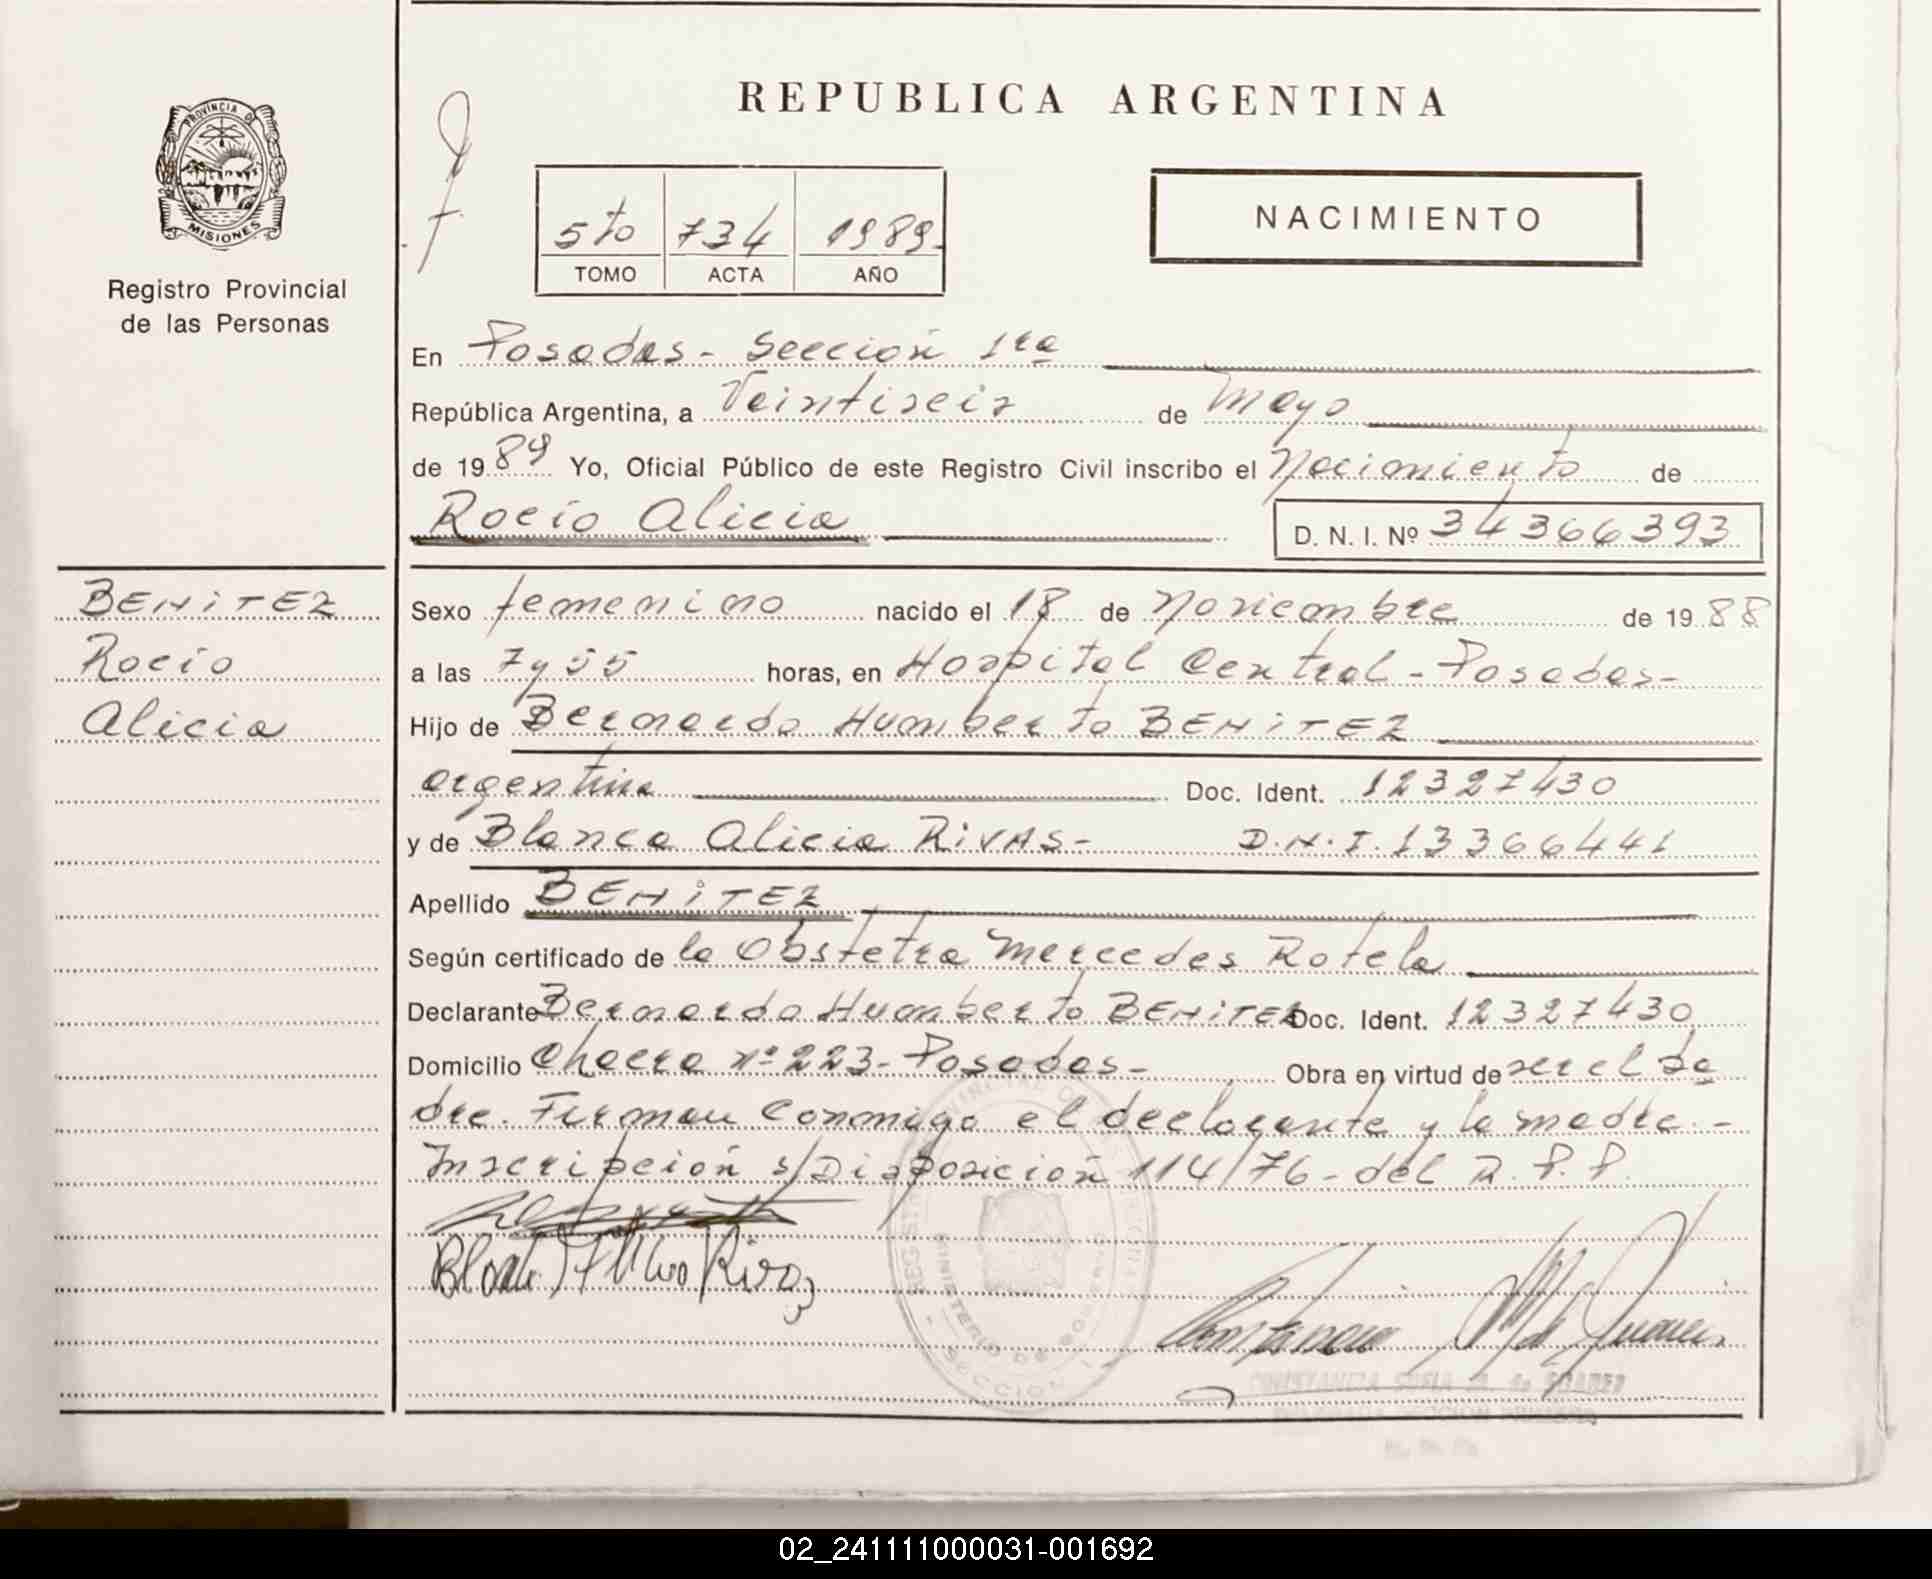 PROVINCIA DE
MISIONES
Registro Provincial
de las Personas
REPUBLICA ARGENTINA
5to 734 1989-
TOMO ACTA AÑO
NACIMIENTO
En Posadas- Sección 1ra
República Argentina, a Veintiseis de Mayo
de 1989 Yo, Oficial Público de este Registro Civil inscribo el Nacimiento de
Rocío Alicia D. N. I. Nº 34366393
BENITEZ
Rocío
Alicia
Sexo femenino nacido el 18 de Noviembre de 1988
a las 7 y 55 horas, en Hospital Central - Posadas-
Hijo de Bernardo Humberto BENITEZ
argentina Doc. Ident. 12327430
y de Blanca Alicia RIVAS- D.N.I. 13366441
Apellido BENITEZ
Según certificado de la Obstetra Mercedes Rotela
Declarante Bernardo Humberto BENITEZ Doc. Ident. 12327430
Domicilio Chacra nº 223- Posadas- Obra en virtud de ser el pa
dre. Firman conmigo el declarante y la madre.-
Inscripción s/Disposición 114/76- del R.P.P.
MINISTERIO DE GOBIERNO
SECCION
CONSTANCIA SOFIA M. de SUAREZ
02_241111000031-001692